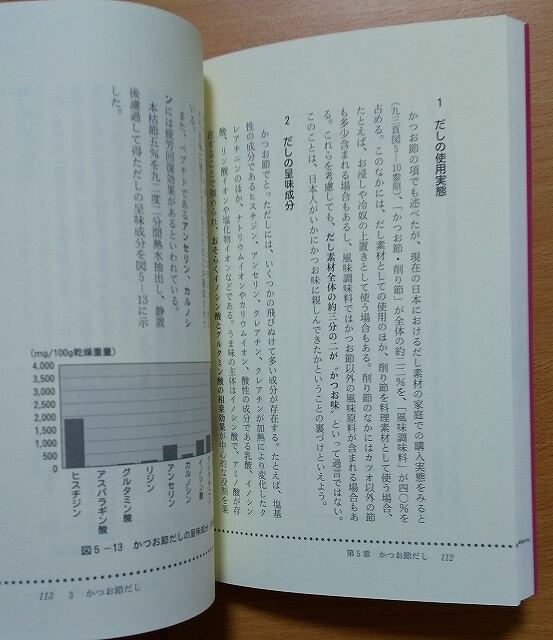 1 だしの使用実態
かつお節の項でも述べたが、現在の日本におけるだし素材の家庭での購入実態をみると
(九三頁図5-10参照)、「かつお節・削り節」が全体の約二二%を、「風味調味料」が四〇%を
占める。このなかには、だし素材としての使用のほか、削り節を料理素材として使う場合、
たとえば、お浸しや冷奴の上置きとして使う場合もある。削り節のなかにはカツオ以外の節
も多少含まれる場合もあるし、風味調味料ではかつお節以外の風味原料が含まれる場合もあ
る。これらを考慮しても、だし素材全体の約三分の二が〝かつお味〟といって過言ではない。
このことは、日本人がいかにかつお味に親しんできたかということの裏づけといえよう。
2 だしの呈味成分
かつお節でとっただしには、いくつかの飛びぬけて多い成分が存在する。たとえば、塩基
性の成分であるヒスチジン、アンセリン、クレアチン、クレアチンが加熱により変化したク
レアチニンのほか、ナトリウムイオンやカリウムイオン、酸性の成分である乳酸、イノシン
酸、リン酸イオンや塩化物イオンなどである。うま味の主体はイノシン酸で、アミノ酸が存
在することで強められ、おそらくイノシン酸とグルタミン酸の相乗効果が中心的な役割を果
第5章 かつお節だし 112
いる。
また、ペプチドであるアンセリン、カルノシ
ンには疲労回復効果があるといわれている。
本枯節五%を九二度二分間熱水抽出し、静置
後濾過して得ただしの呈味成分を図5-13に示
した。
(mg/100g乾燥重量)
4,000
3,500
3,000
2,500
2,000
1,500
1,000
500
0
ヒスチジン
アスパラギン酸
グルタミン酸
リジン
アンセリン
カルノシン
イノシン酸
図5-13 かつお節だしの呈味成分
113 3 かつお節だし